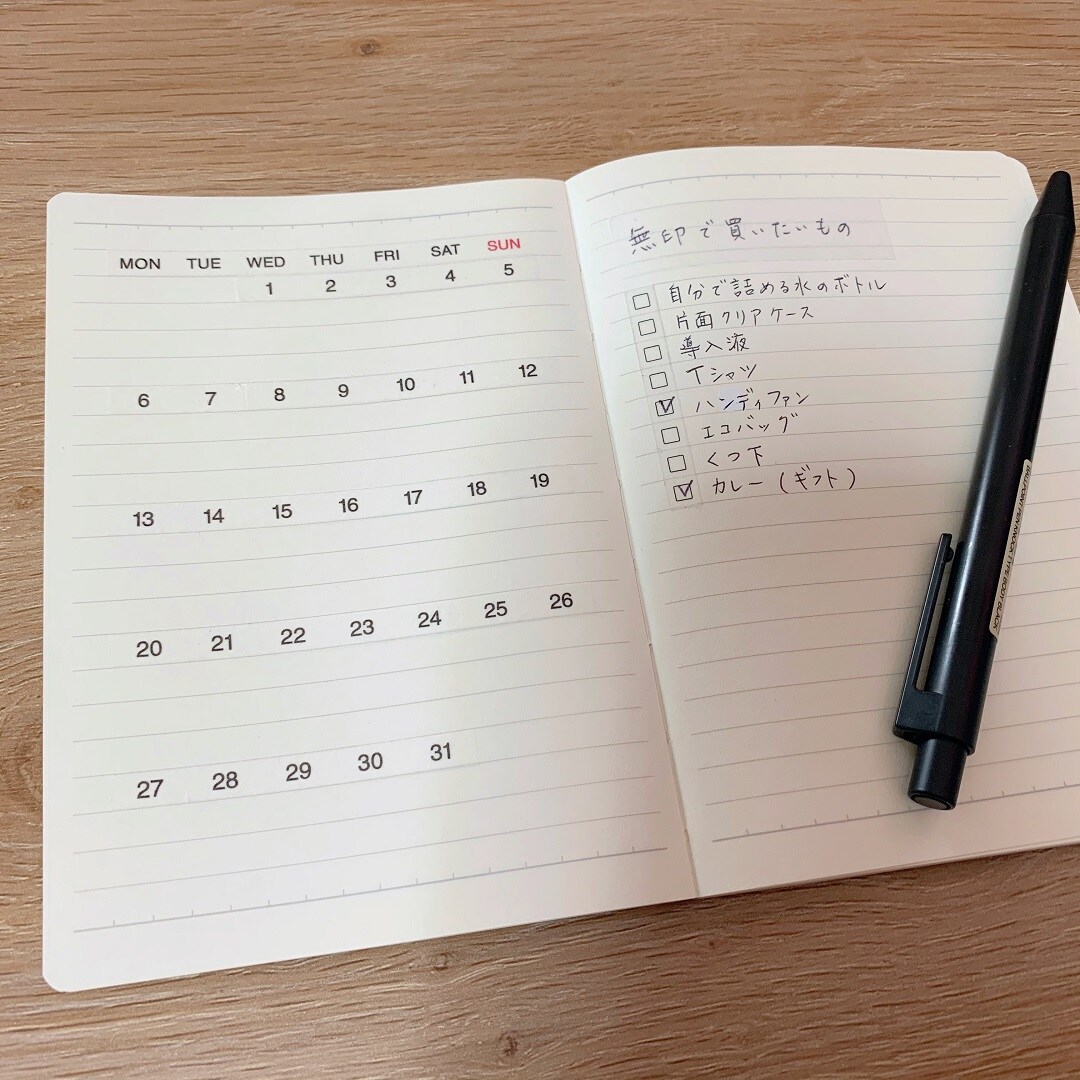 MON TUE WED THU FRI SAT SUN
1 2 3 4 5
6 7 8 9 10 11 12
13 14 15 16 17 18 19
20 21 22 23 24 25 26
27 28 29 30 31
無印で買いたいもの
☐ 自分で詰める水のボトル
☐ 片面クリアケース
☐ 導入液
☐ Tシャツ
☑ ハンディファン
☐ エコバッグ
☐ くつ下
☑ カレー(ギフト)
BALLPOINT PEN KNOCK TYPE BODY BLACK